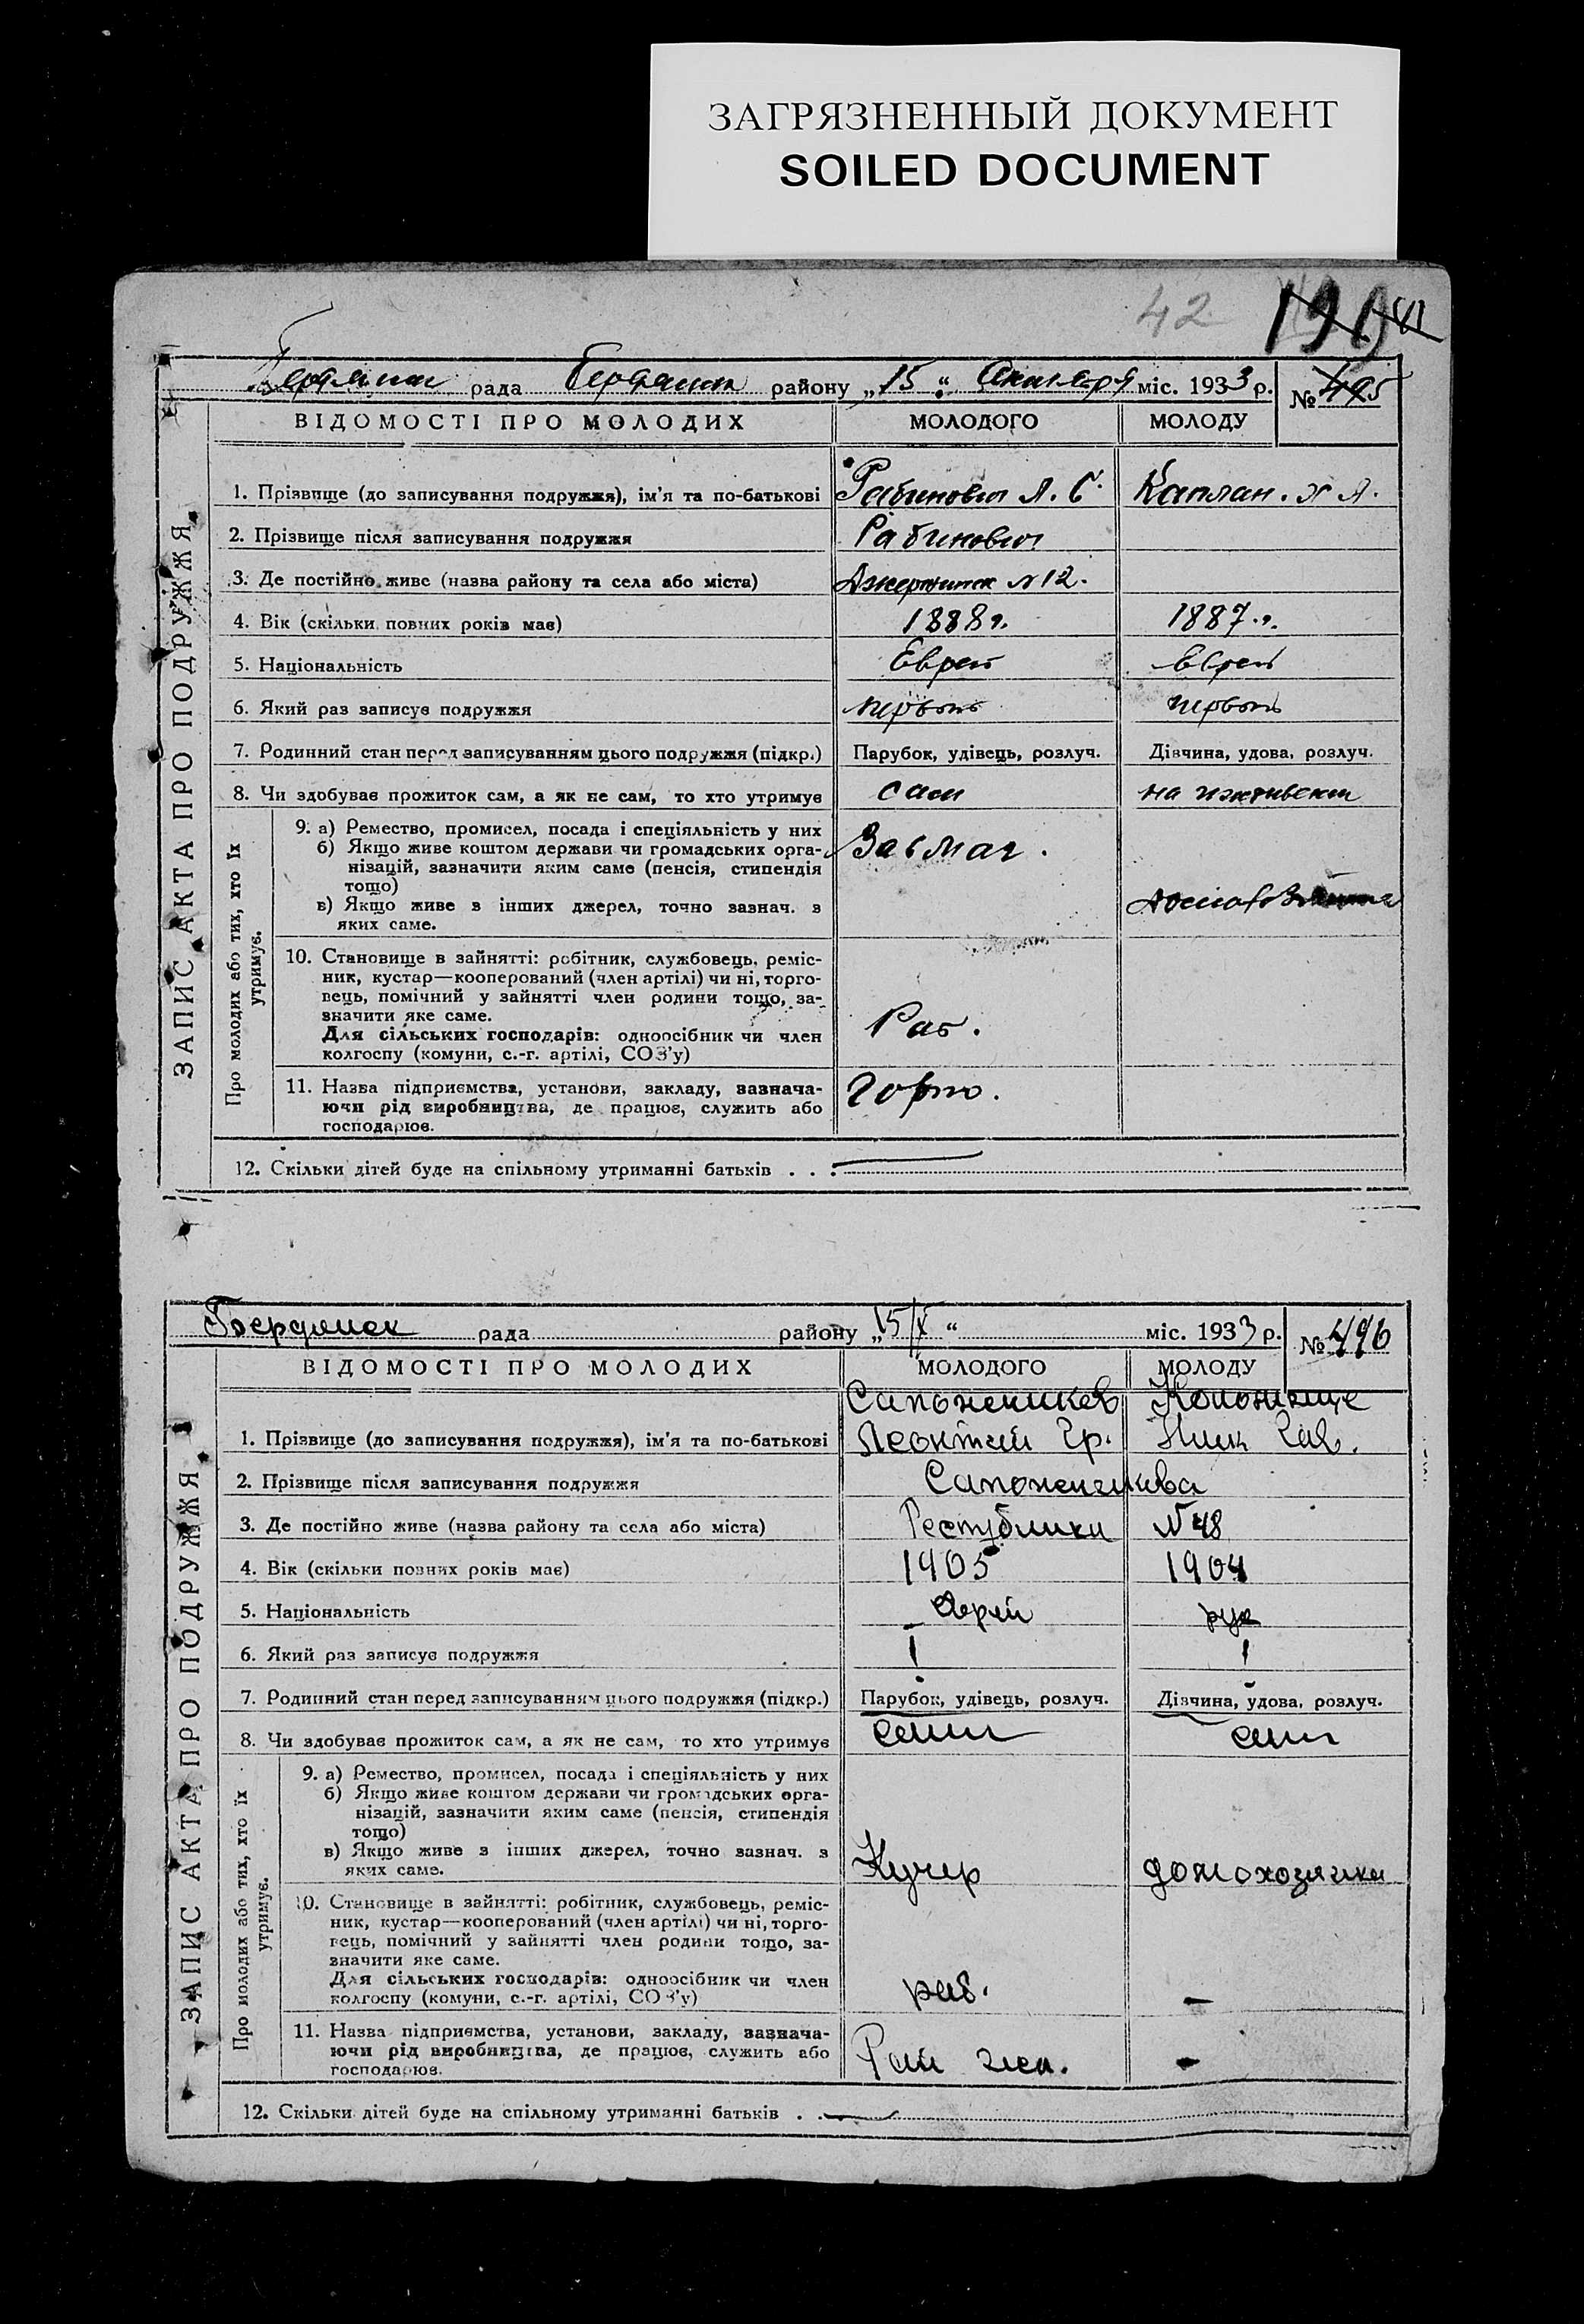 ЗАГРЯЗНЕННЫЙ ДОКУМЕНТ
SOILED DOCUMENT
42
рада района району „15“ міс. 1933 р. № 495
ВІДОМОСТІ ПРО МОЛОДИХ МОЛОДОГО МОЛОДУ
ЗАПИС АКТА ПРО ПОДРУЖЖЯ
1. Прізвище (до записування подружжя), ім'я та по-батькові Рабинович Л. С. Каплан. Х А.
2. Прізвище після записування подружжя Рабинович
3. Де постійно живе (назва району та села або міста) Джержинск N 12.
4. Вік (скільки повних років має) 1888 г. 1887 г.
5. Національність Еврей Еврей
6. Який раз записує подружжя первый первый
7. Родинний стан перед записуванням цього подружжя (підкр.) Парубок, удівець, розлуч. Дівчина, удова, розлуч.
8. Чи здобуває прожиток сам, а як не сам, то хто утримує сам на иждивении
Про молодих або тих, хто їх утримує.
9. а) Ремество, промисел, посада і спеціяльність у них Зав маг.
б) Якщо живе коштом держави чи громадських орга-
нізацій, зазначити яким саме (пенсія, стипендія
тощо)
в) Якщо живе з інших джерел, точно зазнач. з
яких саме.
10. Становище в зайнятті: робітник, службовець, реміс-
ник, кустар—кооперований (член артілі) чи ні, торго-
вець, помічний у зайнятті член родини тощо, за-
значити яке саме. Раб.
Для сільських господарів: одноосібник чи член
колгоспу (комуни, с.-г. артілі, СОЗ'у)
11. Назва підприємства, установи, закладу, зазнача-
ючи рід виробництва, де працює, служить або
господарює.
12. Скільки дітей буде на спільному утриманні батьків . . .
Бердянск рада району „15/X“ міс. 1933 р. № 496
ВІДОМОСТІ ПРО МОЛОДИХ МОЛОДОГО МОЛОДУ
ЗАПИС АКТА ПРО ПОДРУЖЖЯ
1. Прізвище (до записування подружжя), ім'я та по-батькові Леонтий Гр.
2. Прізвище після записування подружжя
3. Де постійно живе (назва району та села або міста) Республики N 48
4. Вік (скільки повних років має) 1905 1904
5. Національність рус
6. Який раз записує подружжя I I
7. Родинний стан перед записуванням цього подружжя (підкр.) Парубок, удівець, розлуч. Дівчина, удова, розлуч.
8. Чи здобуває прожиток сам, а як не сам, то хто утримує
Про молодих або тих, хто їх утримує.
9. а) Ремество, промисел, посада і спеціяльність у них
б) Якщо живе коштом держави чи громадських орга-
нізацій, зазначити яким саме (пенсія, стипендія
тощо)
в) Якщо живе з інших джерел, точно зазнач. з
яких саме. Кучер домохозяйка
10. Становище в зайнятті: робітник, службовець, реміс-
ник, кустар—кооперований (член артілі) чи ні, торго-
вець, помічний у зайнятті член родини тощо, за-
значити яке саме.
Для сільських господарів: одноосібник чи член
колгоспу (комуни, с.-г. артілі, СОЗ'у) раб. –
11. Назва підприємства, установи, закладу, зазнача-
ючи рід виробництва, де працює, служить або
господарює. –
12. Скільки дітей буде на спільному утриманні батьків . .